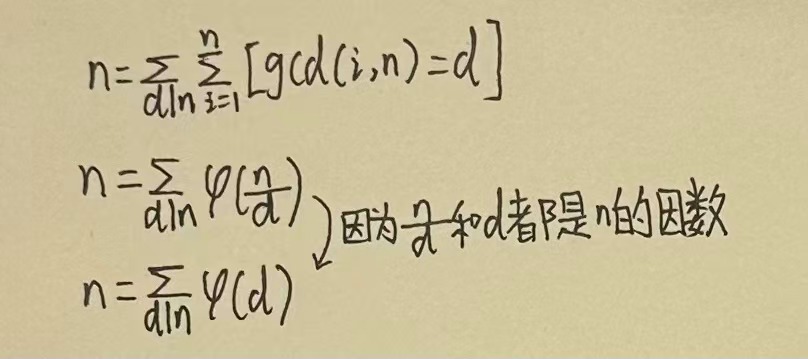 n=∑_{d|n}∑_{i=1}^{n}[gcd(i,n)=d]
n=∑_{d|n}φ(n/d)
因为n/d和d都是n的因数
n=∑_{d|n}φ(d)